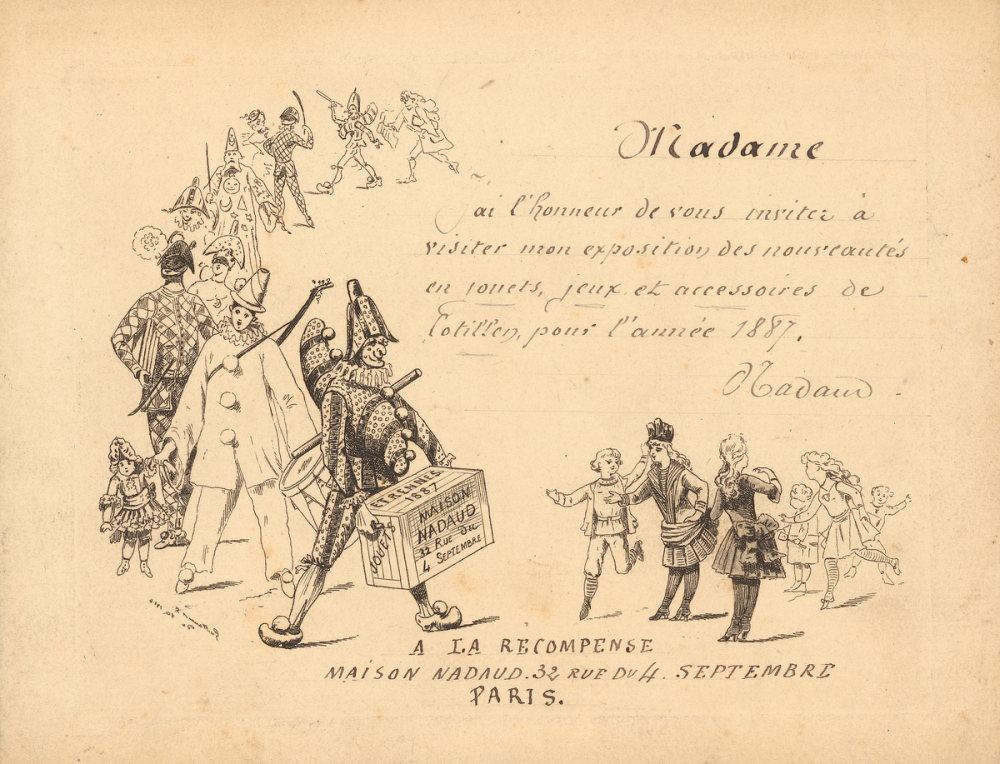 Madame
J'ai l'honneur de vous inviter à
visiter mon exposition des nouveautés
en jouets, jeux et accessoires de
Cotillon, pour l'année 1887.
Nadaud
ETRENNES
1887
MAISON
NADAUD
32 RUE DU
4 SEPTEMBRE
JOUETS
A LA RÉCOMPENSE
MAISON NADAUD. 32 RUE DU 4. SEPTEMBRE
PARIS.